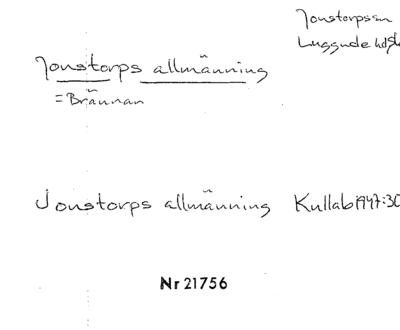 Jonstorps sn
Luggude hd
Jonstorps allmänning
= Brännan
Jonstorps allmänning Kullab 1947:30
Nr 21756